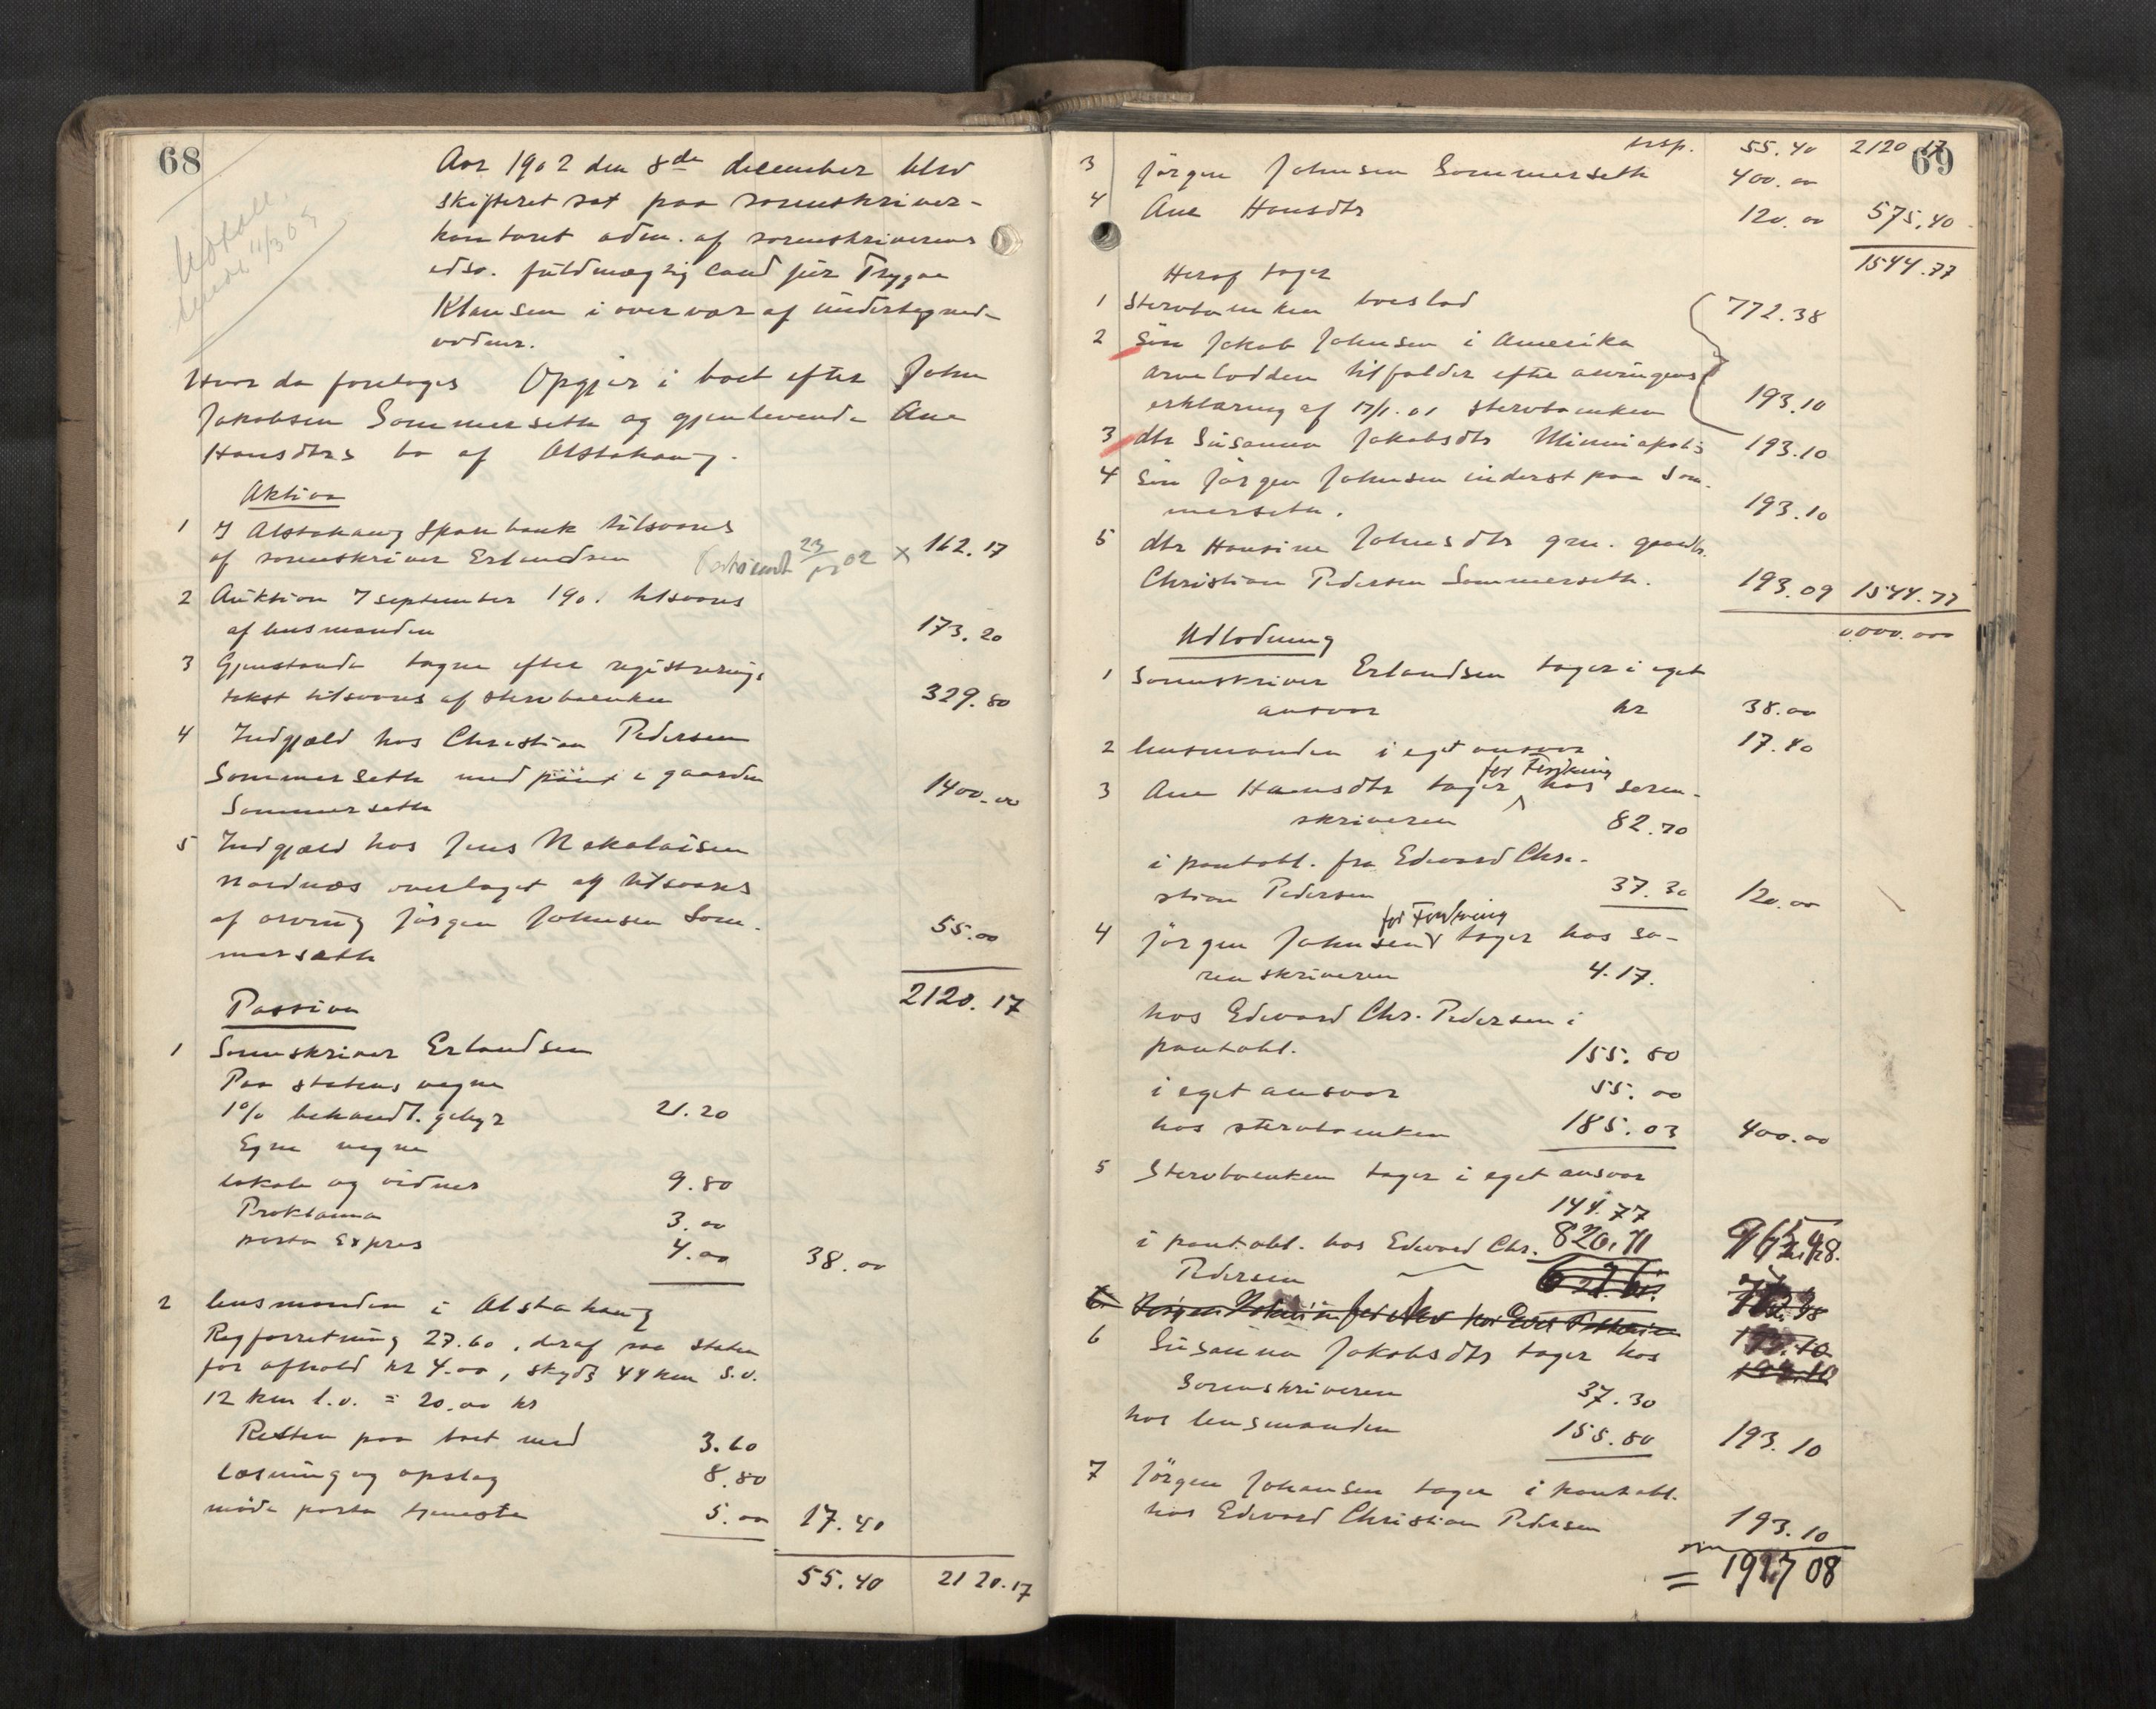 68
Aar 1902 den 8de december blev
skifteret sat paa sorenskriver-
kontoret adm. af sorenskriverens
edsv. fuldmægtig cand jur Trygve
Klausen i overvær af undertegnede
vidner.
Hvor da foretoges Opgjør i boet efter John
Jakobsen Sommerseth og gjenlevende Ane
Hansdtrs bo af Alstahaug.
Aktiva
1 I Alstahaug Sparebank tilsvares
af sorenskriver Erlandsen 23/12 02 x 162.17
2 Auktion 7 september 190. tilsvares
af lensmanden 173.20
3 Gjenstande tagne efter registrerings
takst tilsvares af stervboenken 329.80
4 Indgjæld hos Christian Pedersen
Sommerseth med pant i gaarden
Sommerseth 1400.00
5 Indgjæld hos Jens Nekolaisen
Nordnæs overtaget og tilsvares
af arving Jørgen Johnsen Som-
merseth 55.00
2120.17
Passiva
1 Sorenskriver Erlandsen
Paa statens vegne
1% behandl. gebyr 21.20
Egne vegne
lokale og vidner 9.80
Proklama 3.00
porto Expres 4.00 38.00
2 lensmanden i Alstahaug
Regforretning 27.60, deraf paa staten
for afhold kr 4.00, skyds 44 km s.v.
12 km l.v. = 20.00 kr
Resten paa boet med 3.60
Læsning og opslag 8.80
møde porto tjeneste 5.00 17.40
55.40 2120.17
69
trsp. 55.40 2120 17
3 Jörgen Johnsen Sommerseth 400.00
4 Ane Hansdtr 120.00 575.40
1544.77
Heraf tager
1 Stervboenken boeslod 772.38
2 Sön Jakob Johnsen i Amerika
arvelodden tilfalder efter arvingens
erklæring af 17/1.01 stervboenken 193.10
3 dtr Susanna Jakobsdtr Minniapolis 193.10
4 Sön Jörgen Johnsen inderst paa Som-
merseth. 193.10
5 dtr Hansine Johnsdtr gm. gaardbr.
Christian Pedersen Sommerseth. 193.09 1544.77
0.000.000
Udlodning
1 Sorenskriver Erlandsen tager i eget
ansvar kr 38.00
2 lensmanden i eget ansvar 17.40
for Fordring
3 Ane Hansdtr tager hos soren-
skriveren 82.70
i pantobl. fra Edvard Chri-
stian Pedersen 37.30 120.00
for Fordring
4 Jörgen Johnsen tager hos so-
renskriveren 4.17.
hos Edvard Chr. Pedersen i
pantobl. 155.80
i eget ansvar 55.00
hos stervboenken 185.03 400.00
5 Stervboenken tager i eget ansvar
144.77
i pantobl. hos Edvard Chr. 820.71 965.48.
Pedersen
6 Susanna Jakobsdtr tager hos
Sorenskriveren 37.30
hos lensmanden 155.80 193.10
7 Jörgen Johansen tager i pantobl.
hos Edvard Christian Pedersen 193.10
= 1927 08